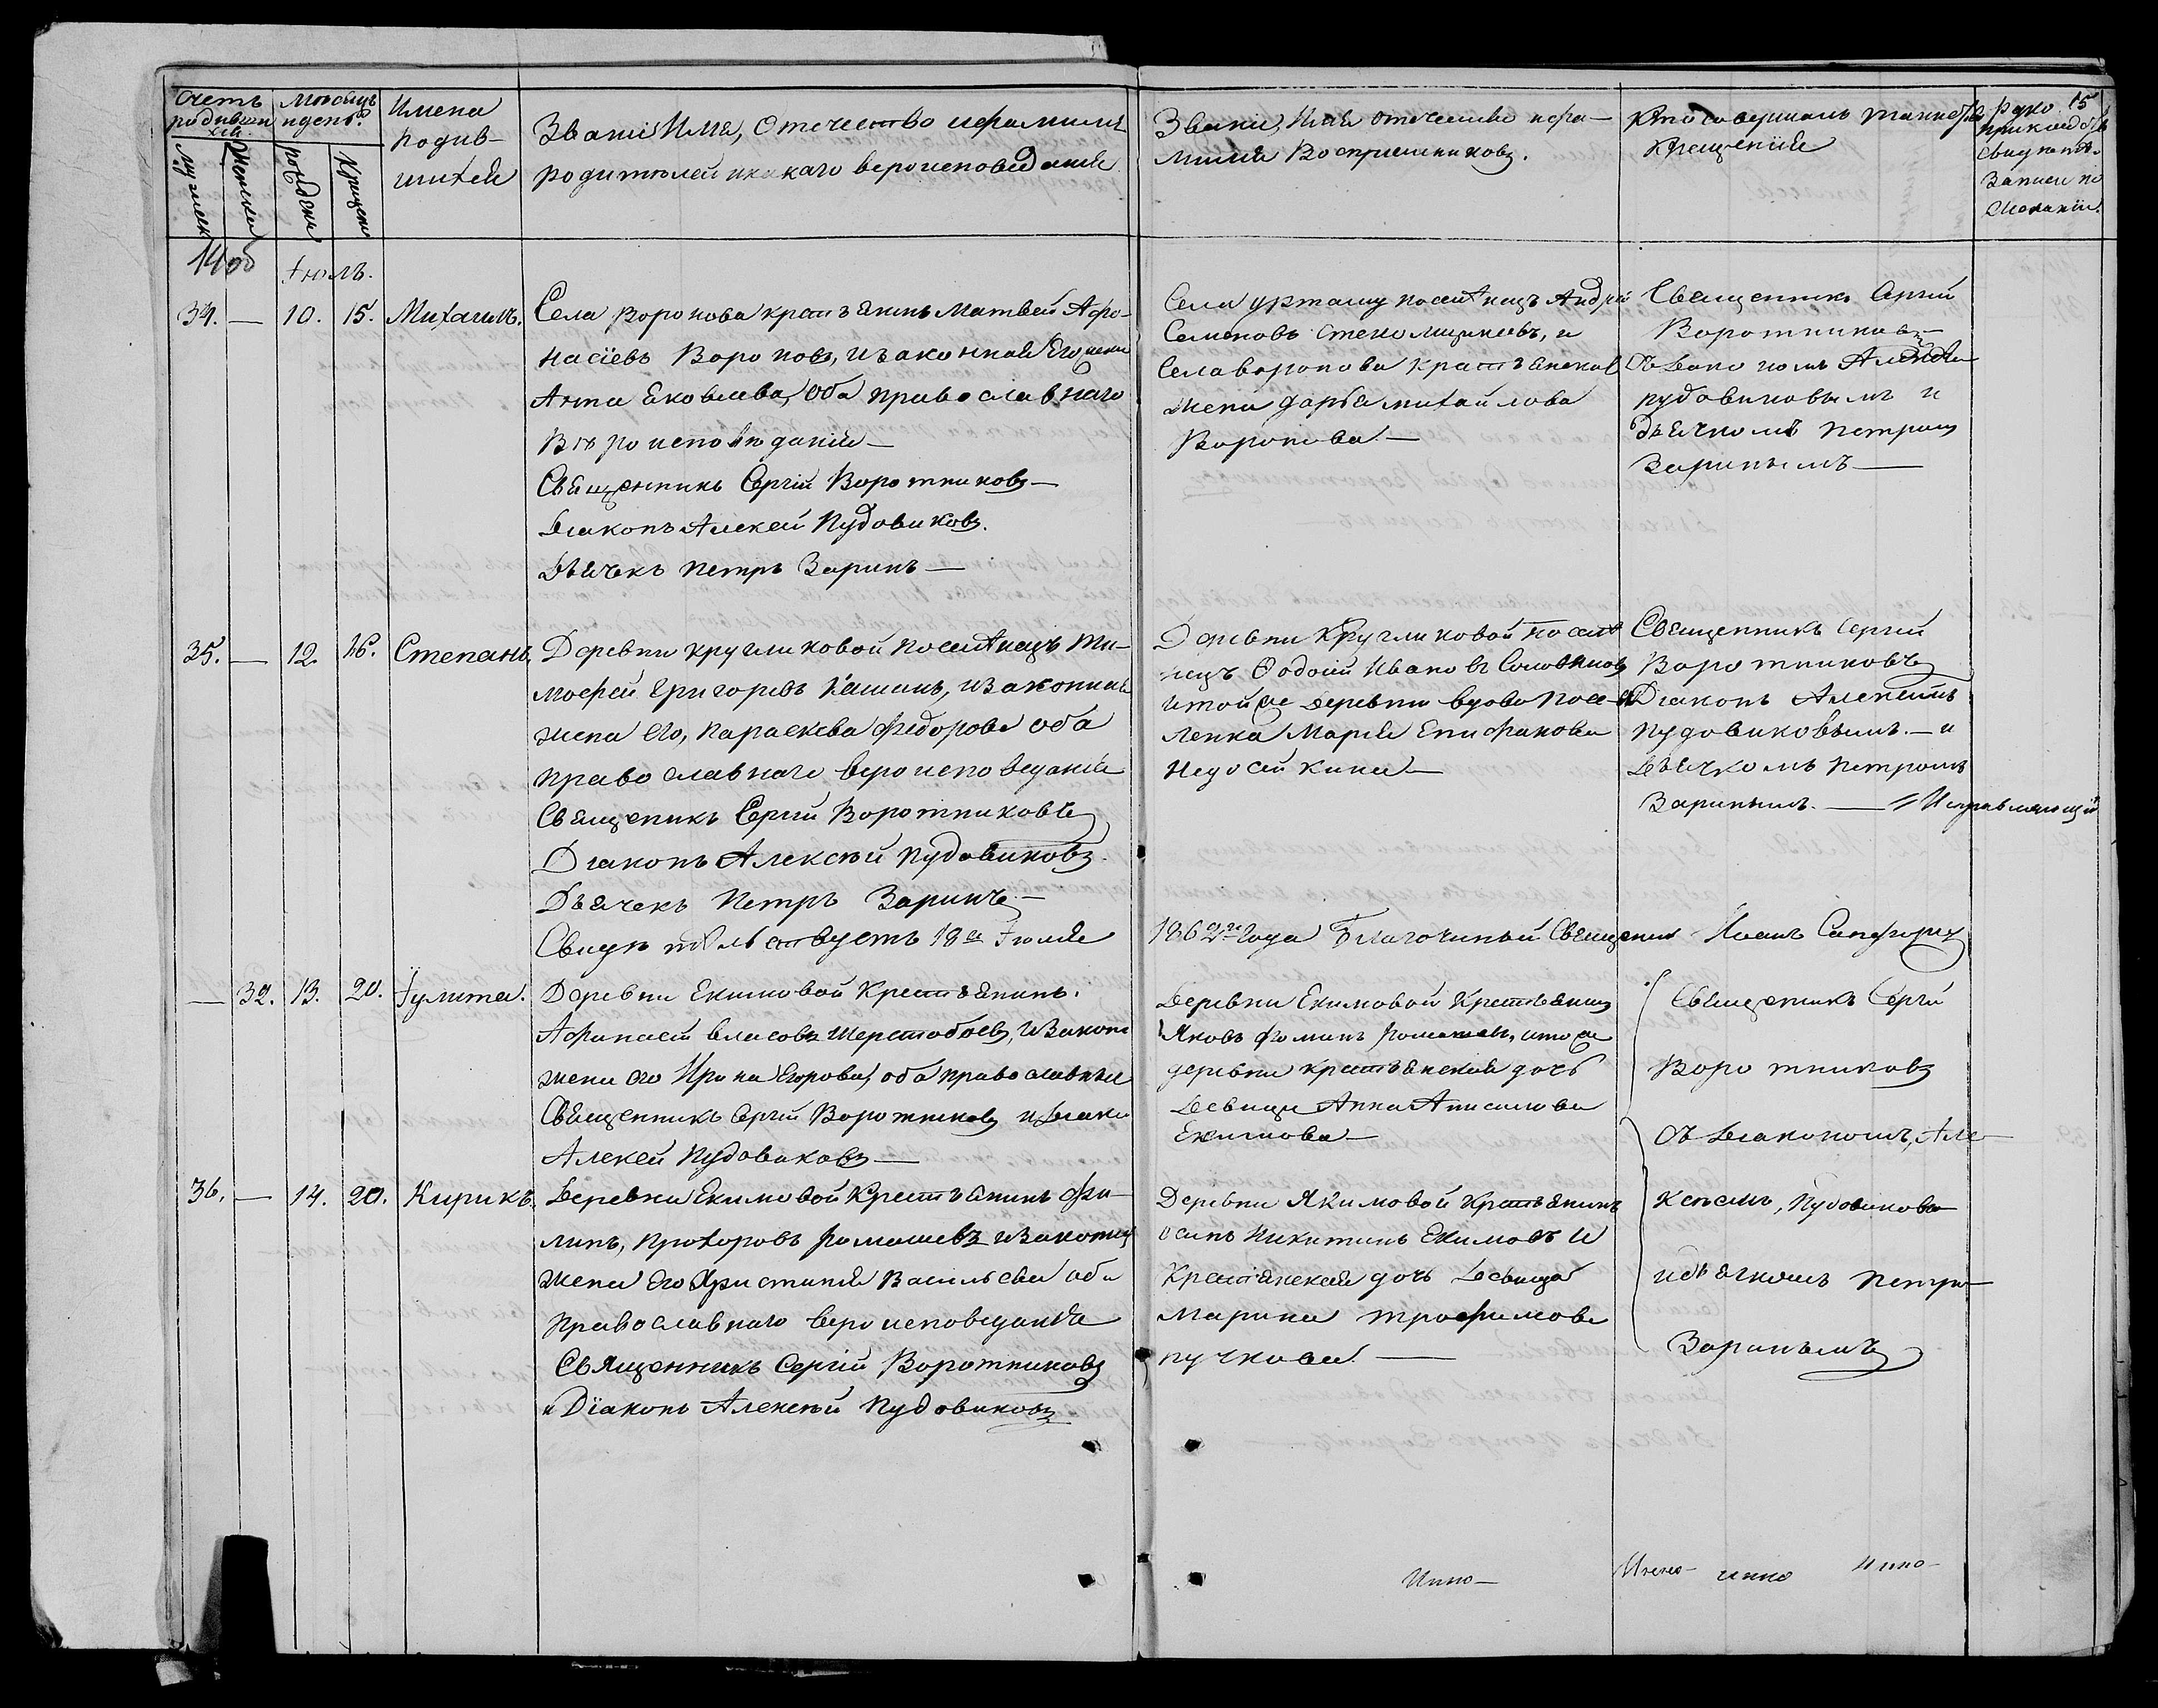 Счетъ родившихся
Мѣсяцъ и день
Имена родившихся
Званіе Имя, Отечество и фамилія
родителей и какаго вероисповеданія
Званіе, Имя отечество и фа-
милия Восприемниковъ.
Кто совершалъ таинство
Крещенія
15
Рукоприкладство
свидетелей
записи по
желанію.
Мужеск
Женска
рождения
Крещения
14 об
Іюль.
34. — 10. 15. Михаилъ.
Села Воронова крестьянинъ Матвей Афо-
насіевъ Вороновъ, и законная Его жена
Анна Яковлева, оба православнаго
Вѣроисповѣданія —
Священникъ Сергій Воротниковъ —
Діаконъ Алексей Пудовиковъ.
Дьячекъ Петръ Заринъ —
Села Уртаму поселенецъ Андрей
Семеновъ Стекольщиковъ, и
Села Воронова Крестьянская
жена Дарья Михайлова
Воронова. —
Священникъ Сергій
Воротниковъ —
Съ Діакономъ Алексѣем
Пудовиковымъ и
дьячкомъ Петромъ
Заринымъ —
35. — 12. 16. Степанъ.
Деревни Кругликовой Поселенецъ Ти-
мофей Григорьевъ Кашинъ, и законная
жена его, Параскева Федорова оба
православнаго вероисповеданія
Священикъ Сергій Воротниковъ
Діаконъ Алексѣй Пудовиковъ.
Дьячекъ Петръ Заринъ. —
Деревни Кругликовой поселе
нецъ Федосій Ивановъ
и той же деревни вдова посе-
ленка Марія Епифанова
Недосейкина —
Священникъ Сергій
Воротниковъ
Діаконъ Алексеймъ
Пудовиковымъ. — и
Дьячкомъ Петромъ
Заринымъ. — Исправляющій
Свидетельствуетъ 18го Іюля
1862го Года Благочинный Священник Иоанъ
— 32. 13. 20. Іулита.
Деревни Екимовой Крестьянинъ.
Афанасей Власовъ Шерстобоевъ, и Законная
жена его Ирина Егорова, оба православные
Священникъ Сергій Воротниковъ и Діаконъ
Алексей Пудовиковъ —
Деревни Екимовой Крестьянинъ
Яковъ Фоминъ Ромашевъ, и той же
деревни крестьянская дочь
Девица Анна Анисимова
Екимова —
Священикъ Сергій
Воротниковъ
Съ Діакономъ, Але-
ксѣемъ, Пудовиковы
и дьячкомъ Петро-
Заринымъ
36. — 14. 20. Кирикъ.
Деревни Екимовой Крестьянинъ Фи-
липъ, Прохоровъ Ромашевъ и Законная
жена Его Христинія Васильева оба
Православнаго вероисповеданія
Священникъ Сергій Воротниковъ
и Діаконъ Алексѣй Пудовиковъ
Деревни Якимовой Крестьянинъ
Осипъ Никитинъ Екимовъ и
Крестьянская дочь Девица
Марина Трофимова
Пучкова. —